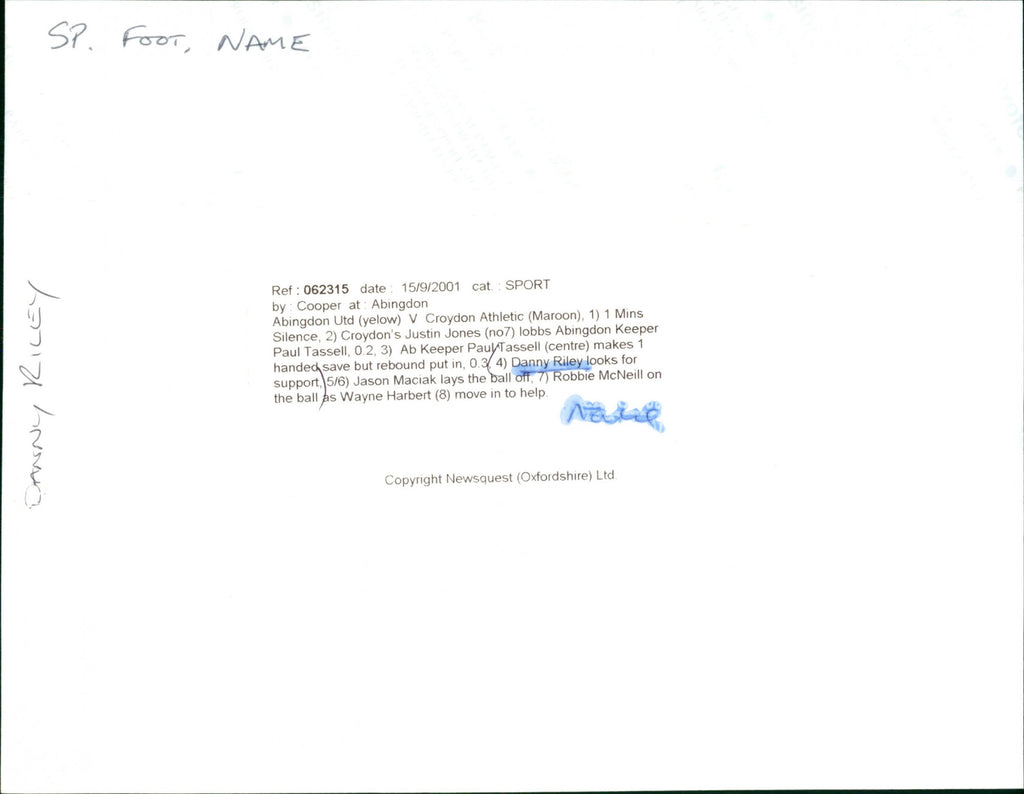 SP. FOOT, NAME
DANNY RILEY
Ref : 062315 date : 15/9/2001 cat. : SPORT
by : Cooper at : Abingdon
Abingdon Utd (yelow) V Croydon Athletic (Maroon), 1) 1 Mins
Silence, 2) Croydon's Justin Jones (no7) lobbs Abingdon Keeper
Paul Tassell, 0.2, 3) Ab Keeper Paul Tassell (centre) makes 1
handed save but rebound put in, 0.3, 4) Danny Riley looks for
support, 5/6) Jason Maciak lays the ball off, 7) Robbie McNeill on
the ball as Wayne Harbert (8) move in to help.
Name
Copyright Newsquest (Oxfordshire) Ltd.